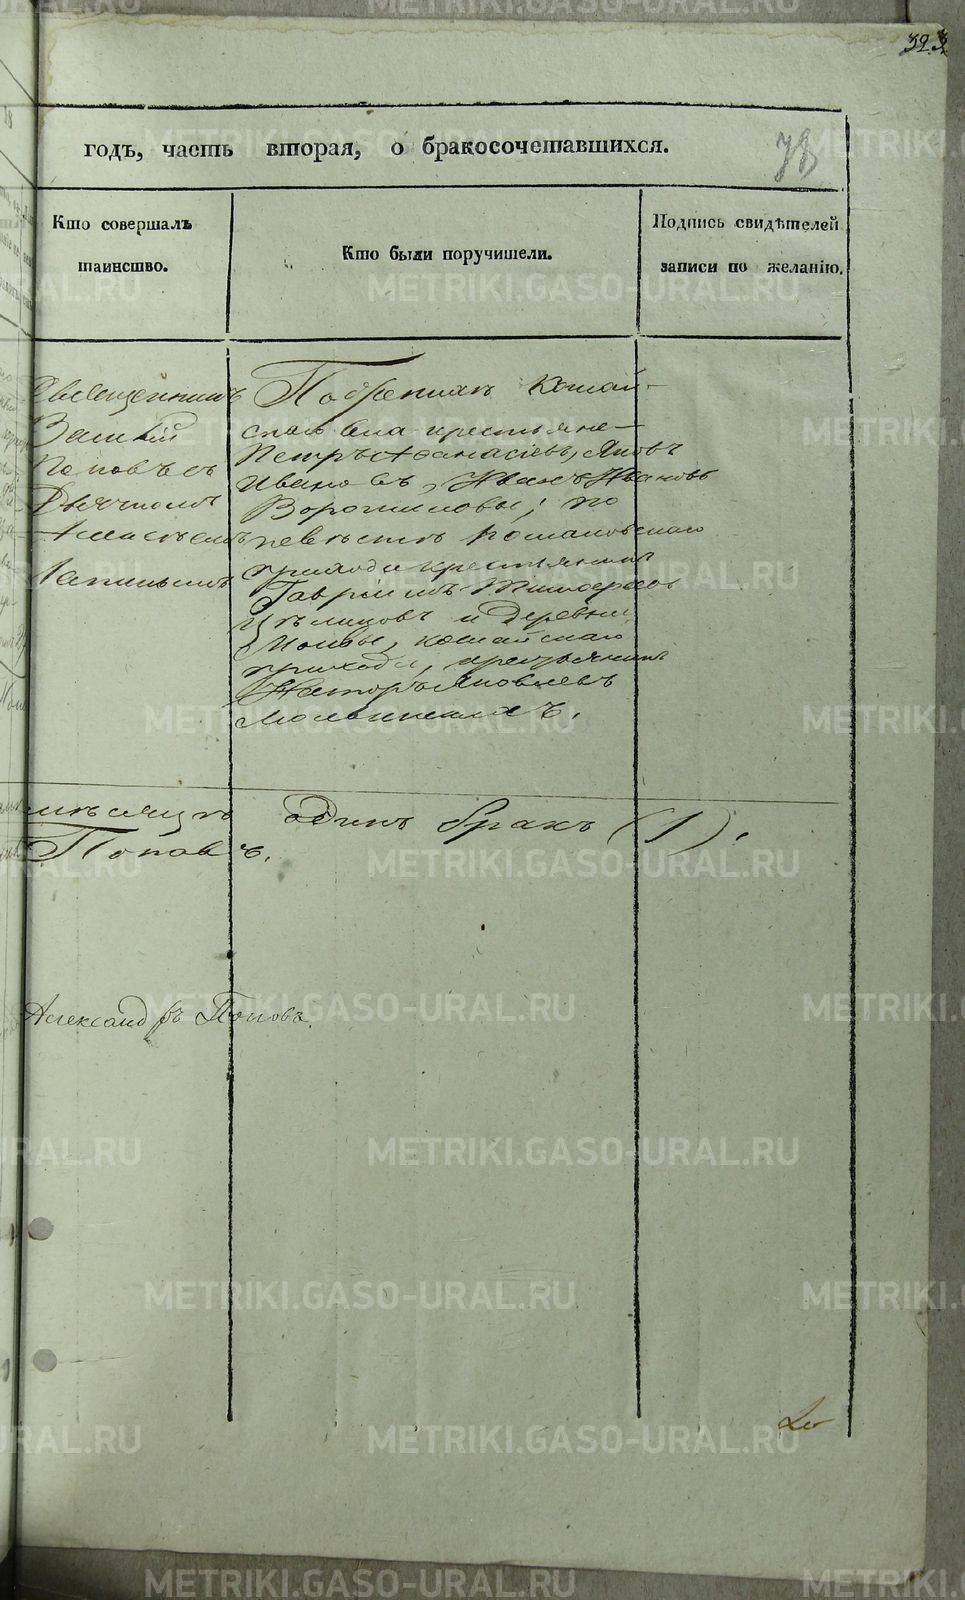 323
годъ, часть вторая, о бракосочетавшихся.
78
Кто совершалъ
таинство.
Кто были поручители.
Подпись свидѣтелей
записи по желанію.
Священникъ
Василій
Поповъ съ
Дьячкомъ
Лапинымъ
По женихѣ Кошай-
скаго села крестьяне
Петръ Аѳанасіевъ, Яковъ
Ивановъ, Иванъ Ивановъ
Ворошиловы; по
невѣстѣ Романовскаго
прихода крестьянинъ
Гавріилъ Тимофеевъ
и Деревни
кошайскаго
прихода, крестьянинъ
Яковлевъ
мѣсяцѣ одинъ бракъ (1).
Поповъ.
Александръ Поповъ.
METRIKI.GASO-URAL.RU